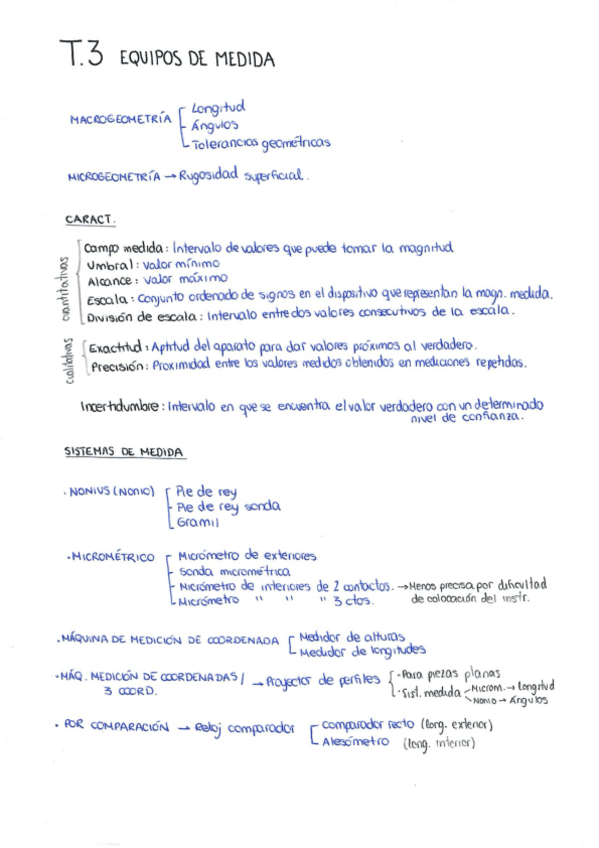 T.3 EQUIPOS DE MEDIDA
MACROGEOMETRÍA
Longitud
Ángulos
Tolerancias geométricas
MICROGEOMETRÍA → Rugosidad superficial.
CARACT.
cuantitativas
Campo medida: Intervalo de valores que puede tomar la magnitud
Umbral: valor mínimo
Alcance: valor máximo
Escala: Conjunto ordenado de signos en el dispositivo que representan la magn. medida.
División de escala: Intervalo entre dos valores consecutivos de la escala.
cualitativas
Exactitud: Aptitud del aparato para dar valores próximos al verdadero.
Precisión: Proximidad entre los valores medidos obtenidos en mediciones repetidas.
Incertidumbre: Intervalo en que se encuentra el valor verdadero con un determinado
nivel de confianza.
SISTEMAS DE MEDIDA
· NONIUS (NONIO)
Pie de rey
Pie de rey sonda
Gramil
· MICROMÉTRICO
Micrómetro de exteriores
Sonda micrométrica
Micrómetro de interiores de 2 contactos. → Menos precisa por dificultad
de colocación del instr.
Micrómetro " " " 3 ctos.
· MÁQUINA DE MEDICIÓN DE COORDENADA
Medidor de alturas
Medidor de longitudes
· MÁQ. MEDICIÓN DE COORDENADAS / → Proyector de perfiles
3 COORD.
· Para piezas planas
· Sist. medida
Microm. → longitud
Nonio → Ángulos
· POR COMPARACIÓN → Reloj comparador
Comparador recto (long. exterior)
Alesómetro (long. interior)